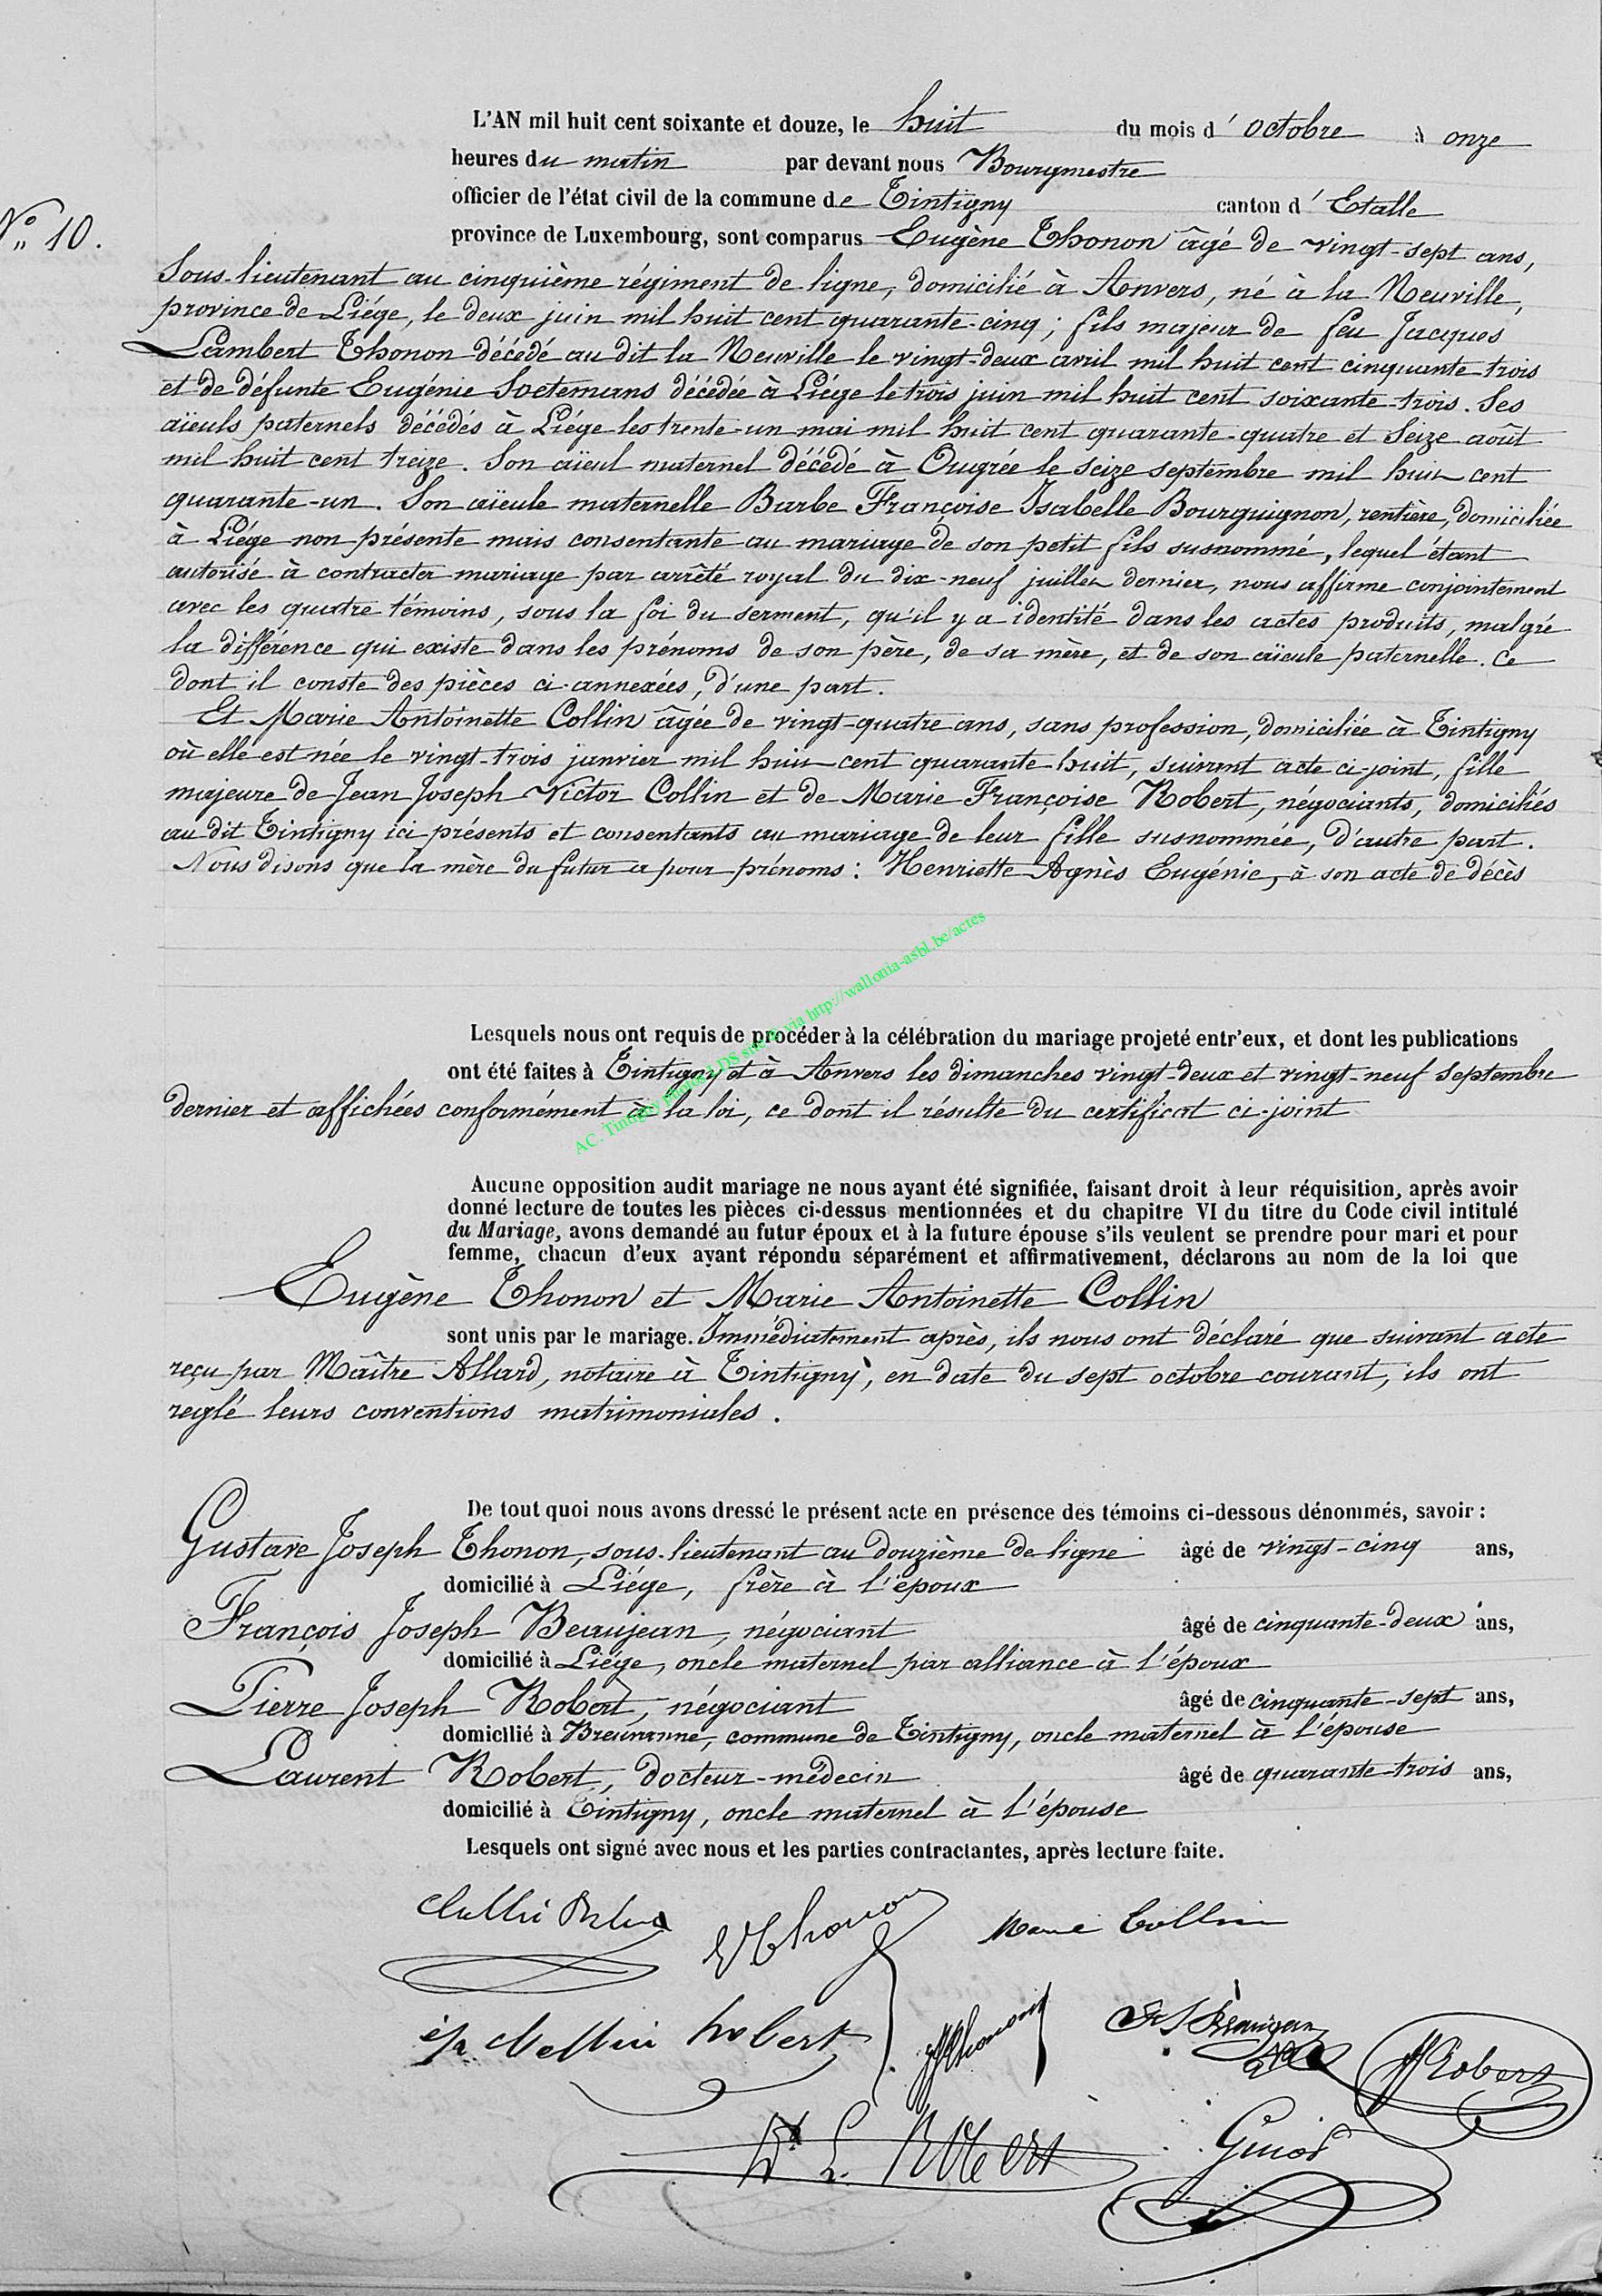 L'AN mil huit cent soixante et douze, le huit du mois d'octobre à onze
heures du matin par devant nous Bourgmestre
officier de l'état civil de la commune de Tintigny canton d'Etalle
N° 10.
province de Luxembourg, sont comparus Eugène Thonon âgé de vingt-sept ans,
Sous-lieutenant au cinquième régiment de ligne, domicilié à Anvers, né à la Neuville,
province de Liége, le deux juin mil huit cent quarante-cinq ; fils majeur de feu Jacques
Lambert Thonon décédé au dit la Neuville le vingt-deux avril mil huit cent cinquante trois
et de défunte Eugénie Soetemans décédée à Liége le trois juin mil huit cent soixante-trois. Ses
aïeuls paternels décédés à Liége les trente-un mai mil huit cent quarante-quatre et Seize août
mil huit cent treize. Son aïeul maternel décédé à Ougrée le seize septembre mil huit cent
quarante-un. Son aïeule maternelle Barbe Françoise Isabelle Bourguignon, rentière, domiciliée
à Liége non présente mais consentante au mariage de son petit fils susnommé, lequel étant
autorisé à contracter mariage par arrêté royal du dix-neuf juillet dernier, nous affirme conjointement
avec les quatre témoins, sous la foi du serment, qu'il y a identité dans les actes produits, malgré
la différence qui existe dans les prénoms de son père, de sa mère, et de son aïeule paternelle. Ce
dont il conste des pièces ci-annexées, d'une part.
Et Marie Antoinette Collin âgée de vingt-quatre ans, sans profession, domiciliée à Tintigny
où elle est née le vingt-trois janvier mil huit cent quarante-huit, suivant acte ci-joint, fille
majeure de Jean Joseph Victor Collin et de Marie Françoise Robert, négociants, domiciliés
au dit Tintigny ici présents et consentants au mariage de leur fille susnommée, d'autre part.
Nous disons que la mère du futur a pour prénoms : Henriette Agnès Eugénie, à son acte de décès
AC. Tintigny photos LDS site via http://wallonia-asbl.be/actes
Lesquels nous ont requis de procéder à la célébration du mariage projeté entr'eux, et dont les publications
ont été faites à Tintigny et à Anvers les dimanches vingt-deux et vingt-neuf Septembre
dernier et affichées conformément à la loi, ce dont il résulte du certificat ci-joint
Aucune opposition audit mariage ne nous ayant été signifiée, faisant droit à leur réquisition, après avoir
donné lecture de toutes les pièces ci-dessus mentionnées et du chapitre VI du titre du Code civil intitulé
du Mariage, avons demandé au futur époux et à la future épouse s'ils veulent se prendre pour mari et pour
femme, chacun d'eux ayant répondu séparément et affirmativement, déclarons au nom de la loi que
Eugène Thonon et Marie Antoinette Collin
sont unis par le mariage. Immédiatement après, ils nous ont déclaré que suivant acte
reçu par Maître Allard, notaire à Tintigny, en date du sept octobre courant, ils ont
reglé leurs conventions matrimoniales.
De tout quoi nous avons dressé le présent acte en présence des témoins ci-dessous dénommés, savoir :
Gustave Joseph Thonon, sous-lieutenant au douzième de ligne âgé de vingt-cinq ans,
domicilié à Liége, frère à l'époux
François Joseph Beaujean, négociant âgé de cinquante-deux ans,
domicilié à Liége, oncle maternel par alliance à l'époux
Pierre Joseph Robert, négociant âgé de cinquante-sept ans,
domicilié à Breuvanne, commune de Tintigny, oncle maternel à l'épouse
Laurent Robert, docteur-médecin âgé de quarante-trois ans,
domicilié à Tintigny, oncle maternel à l'épouse
Lesquels ont signé avec nous et les parties contractantes, après lecture faite.
EThonon Marie Collin
Collin Robert Thonon Beaujean Robert
Dr L. Robert